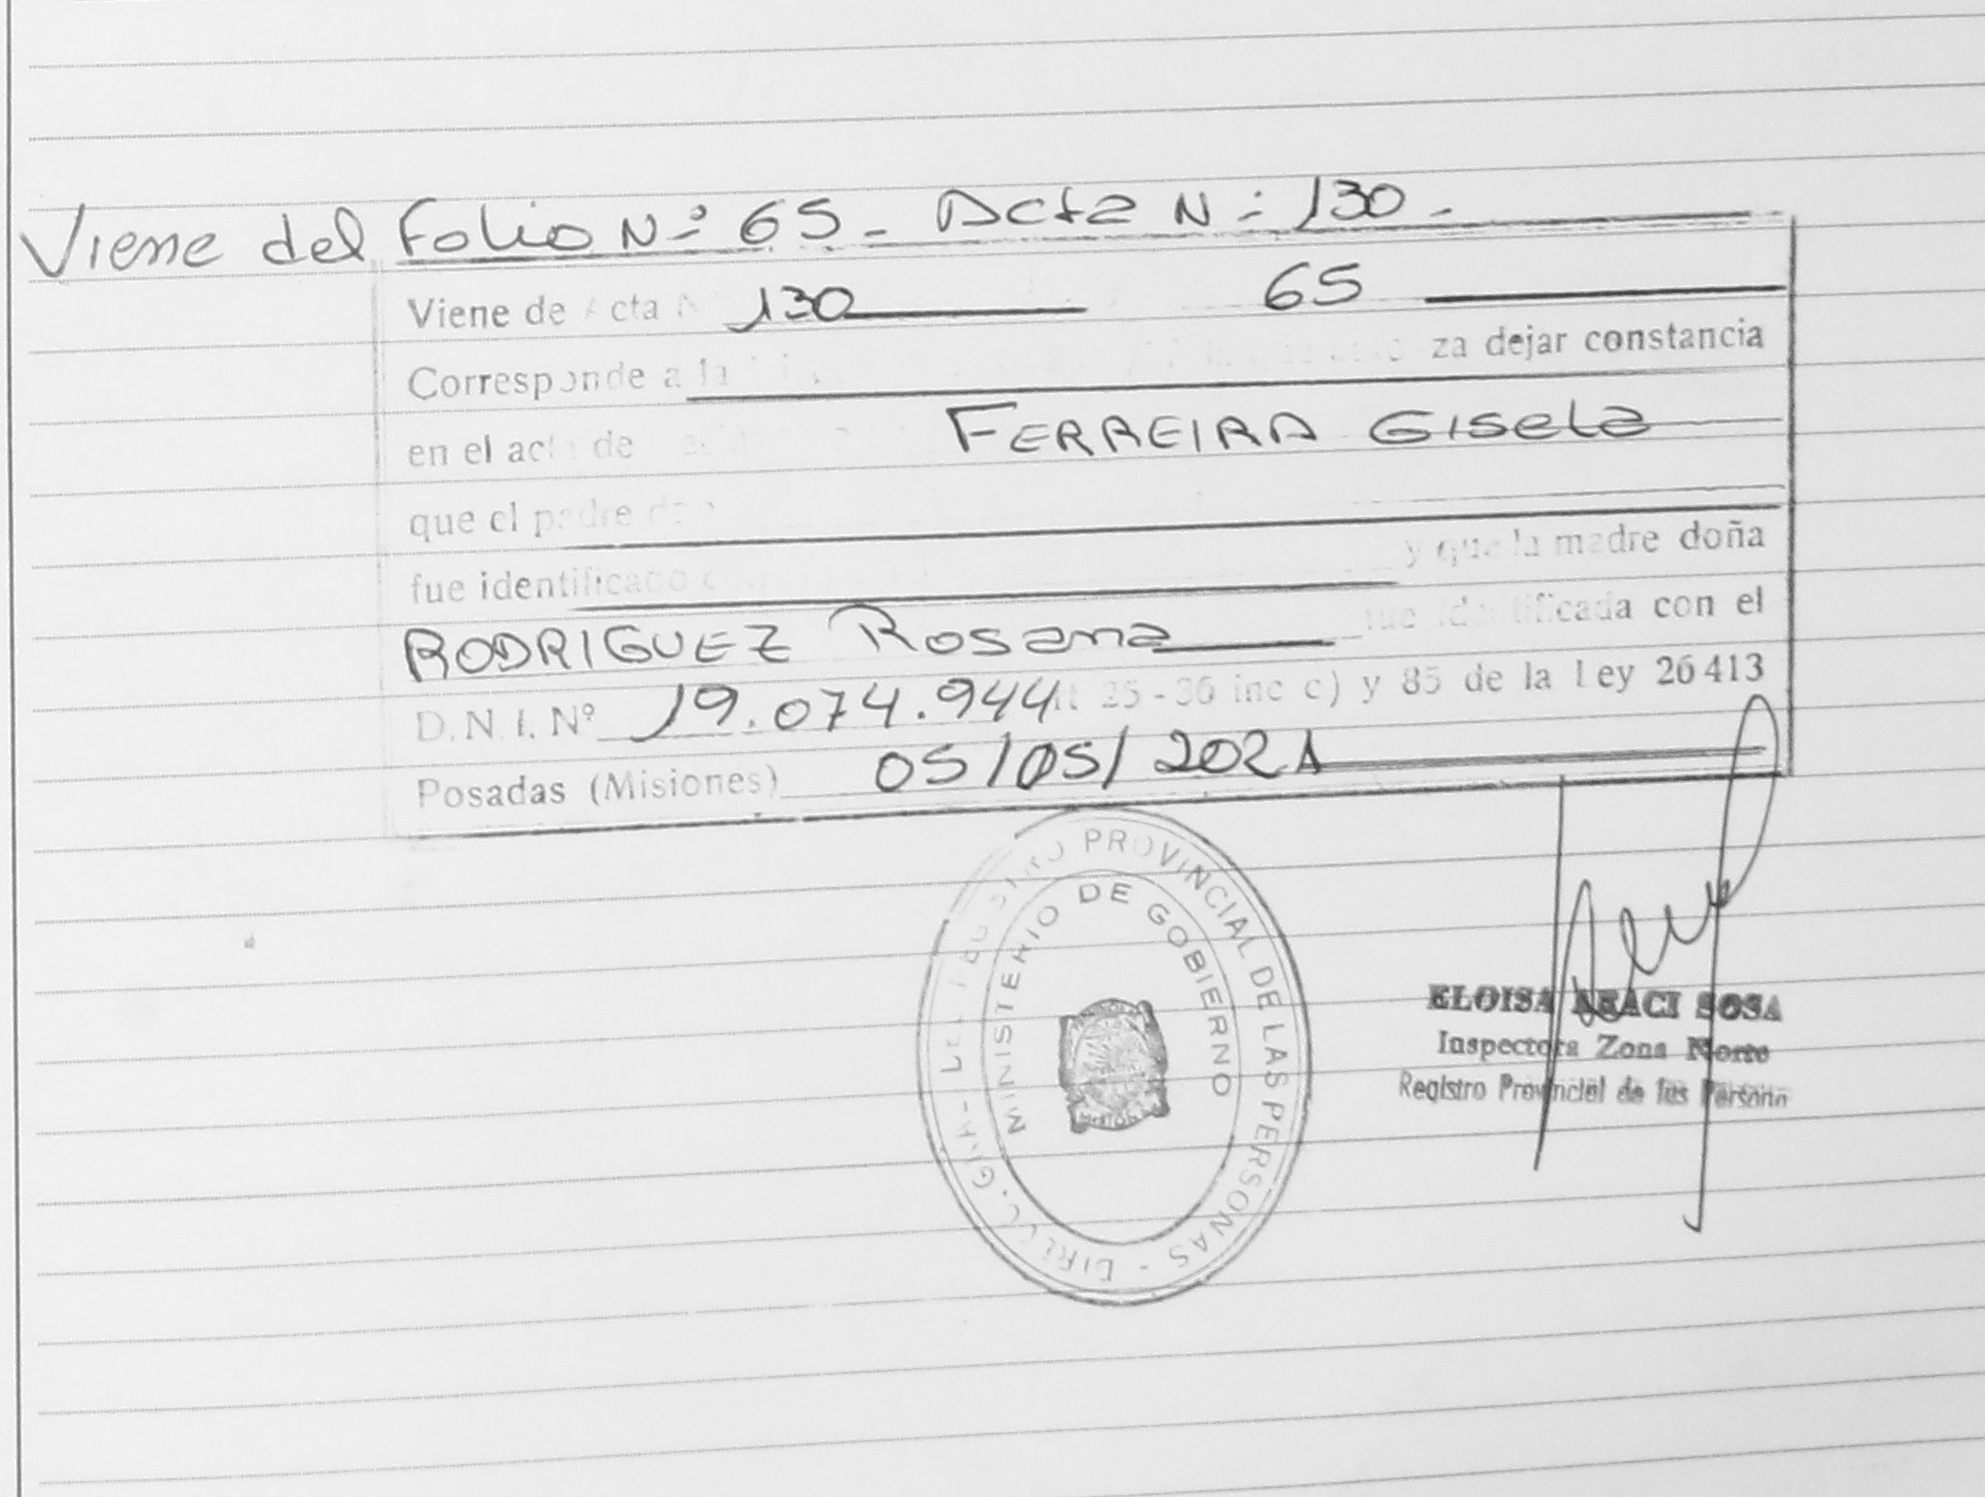 Viene del Folio N: 65 - Acta N: 130.-
Viene de Acta N 130 65
Corresponde a la za dejar constancia
en el acta de FERREIRA Gisela
que el padre don
fue identificado y que la madre doña
RODRIGUEZ Rosana fue identificada con el
D.N.I. Nº 19.074.944 25 - 36 inc c) y 85 de la Ley 26413
Posadas (Misiones) 05/05/2021
PROVINCIAL DE LAS PERSONAS -
MINISTERIO DE GOBIERNO
ELOISA ARACI SOSA
Inspectora Zona Norte
Registro Provincial de las Persona